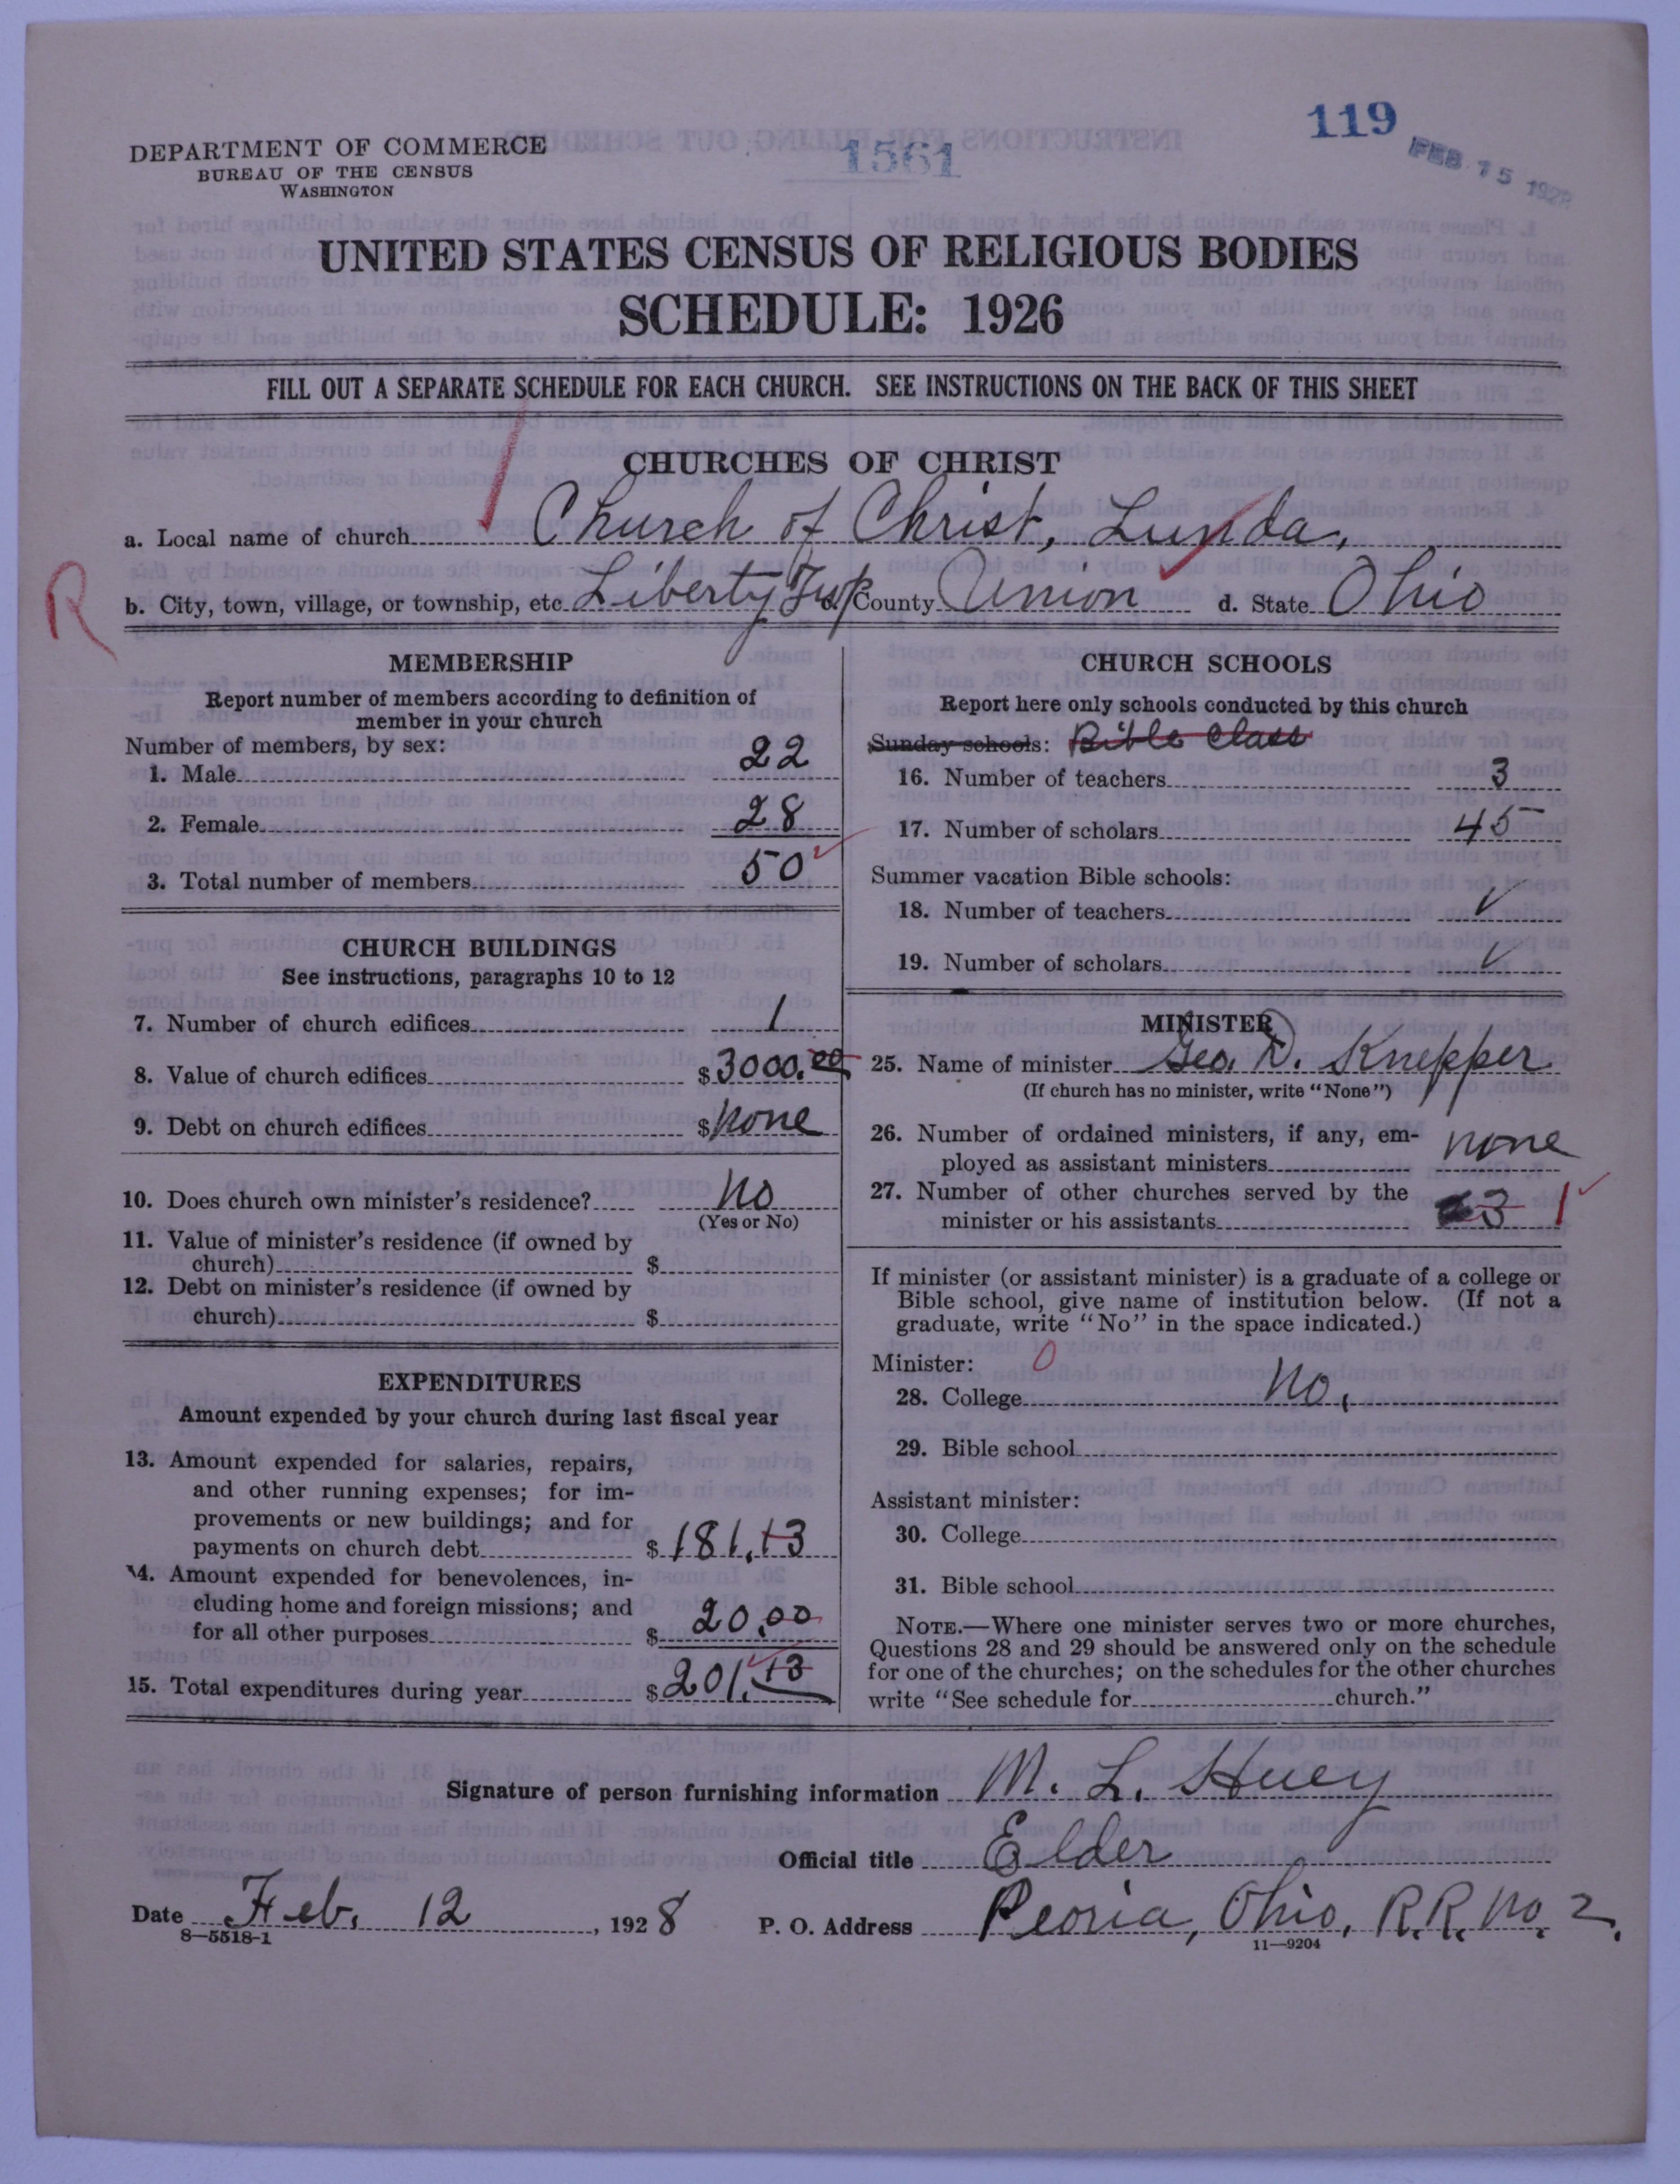 119
1561
FEB 15 1928
DEPARTMENT OF COMMERCE
BUREAU OF THE CENSUS
WASHINGTON
UNITED STATES CENSUS OF RELIGIOUS BODIES
SCHEDULE: 1926
FILL OUT A SEPARATE SCHEDULE FOR EACH CHURCH. SEE INSTRUCTIONS ON THE BACK OF THIS SHEET
CHURCHES OF CHRIST
a. Local name of church Church of Christ, Lunda,
R
b. City, town, village, or township, etc. Liberty Twp c. County Union d. State Ohio
MEMBERSHIP
Report number of members according to definition of
member in your church
Number of members, by sex:
1. Male 22
2. Female 28
3. Total number of members 50
CHURCH BUILDINGS
See instructions, paragraphs 10 to 12
7. Number of church edifices 1
8. Value of church edifices $3000.00
9. Debt on church edifices $none
10. Does church own minister's residence? No
(Yes or No)
11. Value of minister's residence (if owned by
church) $
12. Debt on minister's residence (if owned by
church) $
EXPENDITURES
Amount expended by your church during last fiscal year
13. Amount expended for salaries, repairs,
and other running expenses; for im-
provements or new buildings; and for
payments on church debt $181.13
14. Amount expended for benevolences, in-
cluding home and foreign missions; and
for all other purposes $20.00
15. Total expenditures during year $201.13
CHURCH SCHOOLS
Report here only schools conducted by this church
Sunday schools: Bible Class
16. Number of teachers 3
17. Number of scholars 45
Summer vacation Bible schools:
18. Number of teachers
19. Number of scholars
MINISTER
25. Name of minister Geo. D. Knepper
(If church has no minister, write "None")
26. Number of ordained ministers, if any, em-
ployed as assistant ministers none
27. Number of other churches served by the
minister or his assistants 3 1
If minister (or assistant minister) is a graduate of a college or
Bible school, give name of institution below. (If not a
graduate, write "No" in the space indicated.)
Minister: 0
28. College No.
29. Bible school
Assistant minister:
30. College
31. Bible school
NOTE.—Where one minister serves two or more churches,
Questions 28 and 29 should be answered only on the schedule
for one of the churches; on the schedules for the other churches
write "See schedule for church."
Signature of person furnishing information M. L. Huey
Official title Elder
Date Feb. 12, 1928 P. O. Address Peoria, Ohio, R.R. No. 2.
8—5518-1
11—9204